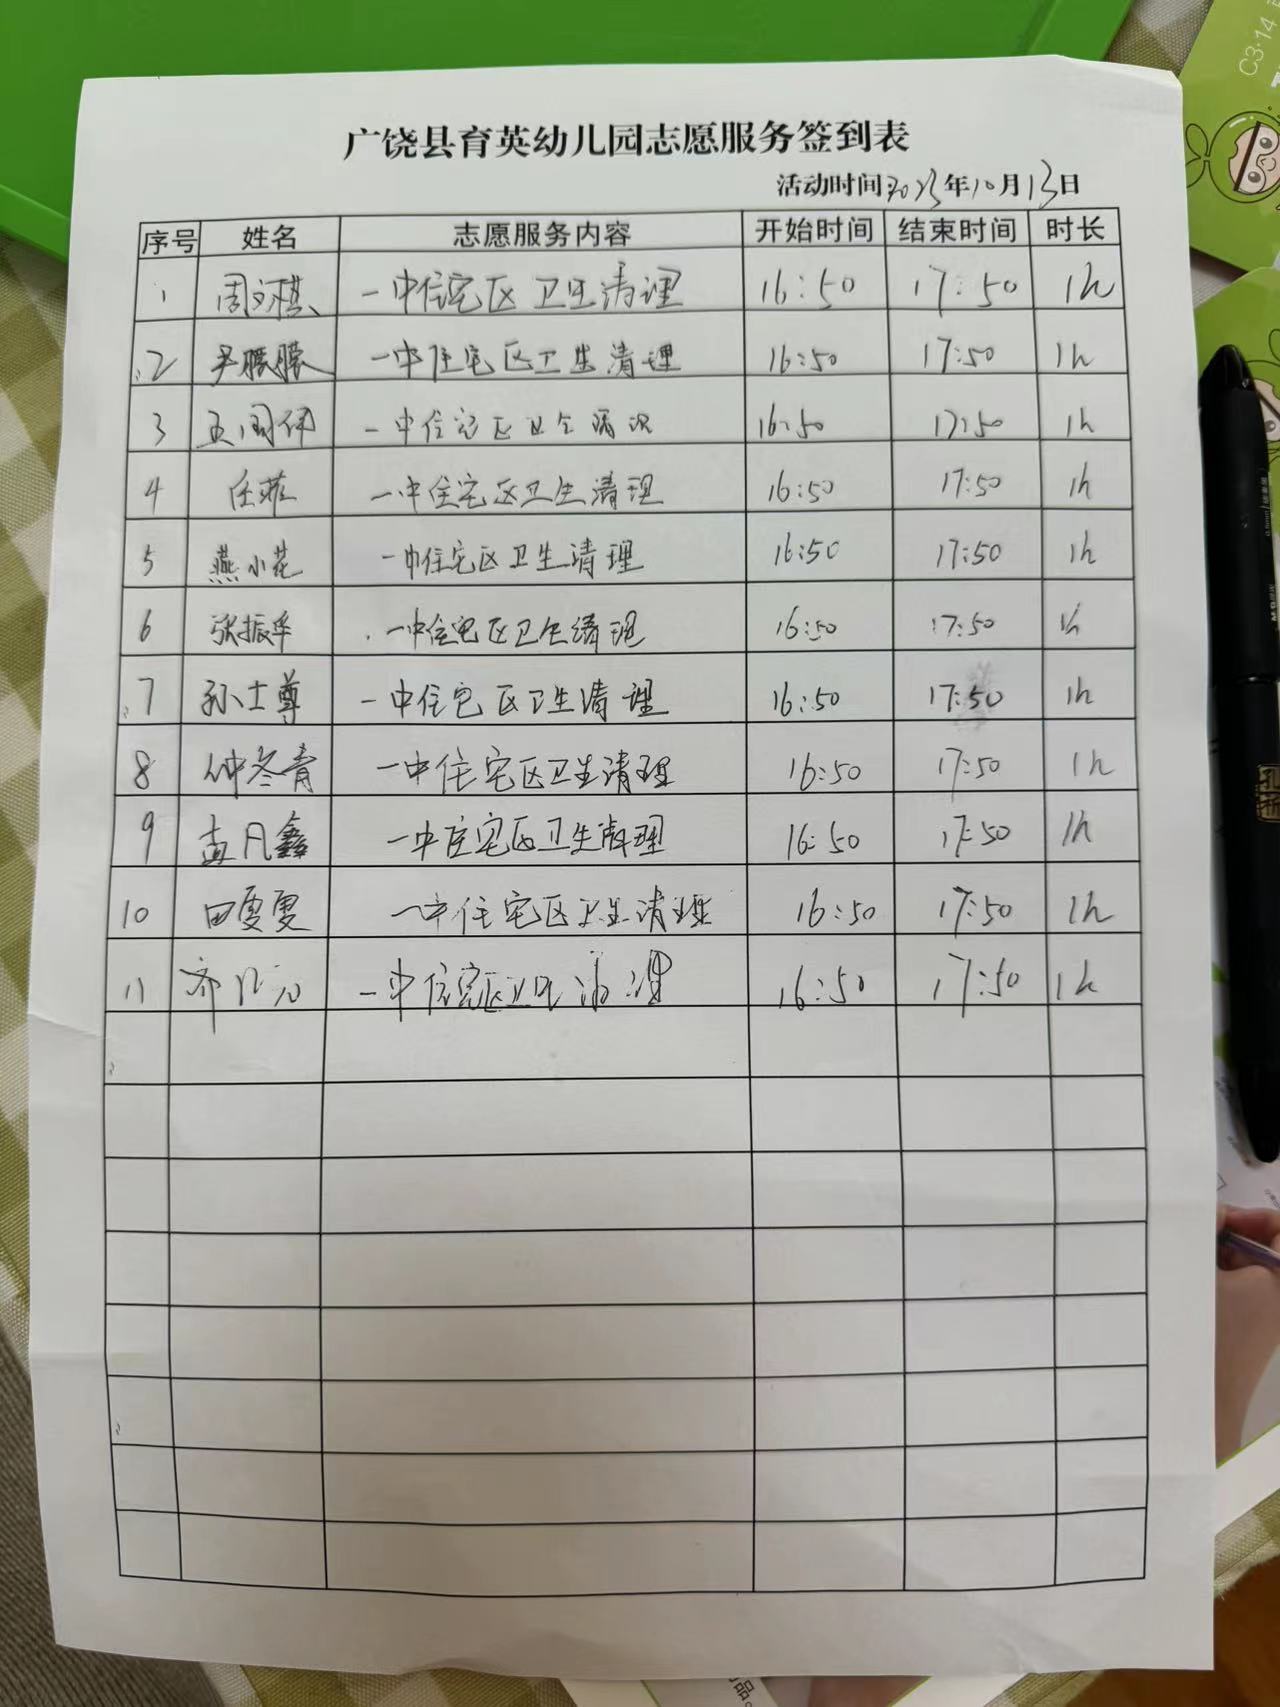 广饶县育英幼儿园志愿服务签到表
活动时间2023年10月13日
序号 姓名 志愿服务内容 开始时间 结束时间 时长
1 周文棋 一中住宅区卫生清理 16:50 17:50 1h
2 吴朦朦 一中住宅区卫生清理 16:50 17:50 1h
3 一中住宅区卫生清理 16:50 17:50 1h
4 任菲 一中住宅区卫生清理 16:50 17:50 1h
5 燕小花 一中住宅区卫生清理 16:50 17:50 1h
6 张振华 一中住宅区卫生清理 16:50 17:50 1h
7 孙士尊 一中住宅区卫生清理 16:50 17:50 1h
8 仲冬青 一中住宅区卫生清理 16:50 17:50 1h
9 孟凡鑫 一中住宅区卫生清理 16:50 17:50 1h
10 田雯雯 一中住宅区卫生清理 16:50 17:50 1h
11 齐 一中住宅区卫生清理 16:50 17:50 1h
C3·14